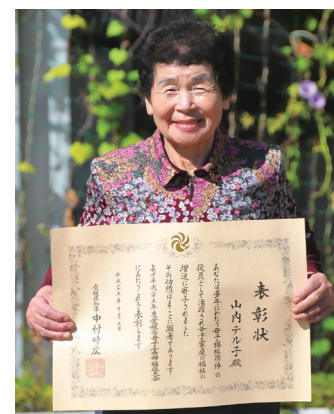 表彰状
山内テル子殿
あなたは多年にわたり母子福祉団体の
役員として活躍され母子家庭の福祉の
増進に寄与されました
その功績はまことに顕著であります
よって平成二十五年度愛媛県母子寡婦福祉大会
にあたりこれを表彰します
愛媛県知事 中村時広